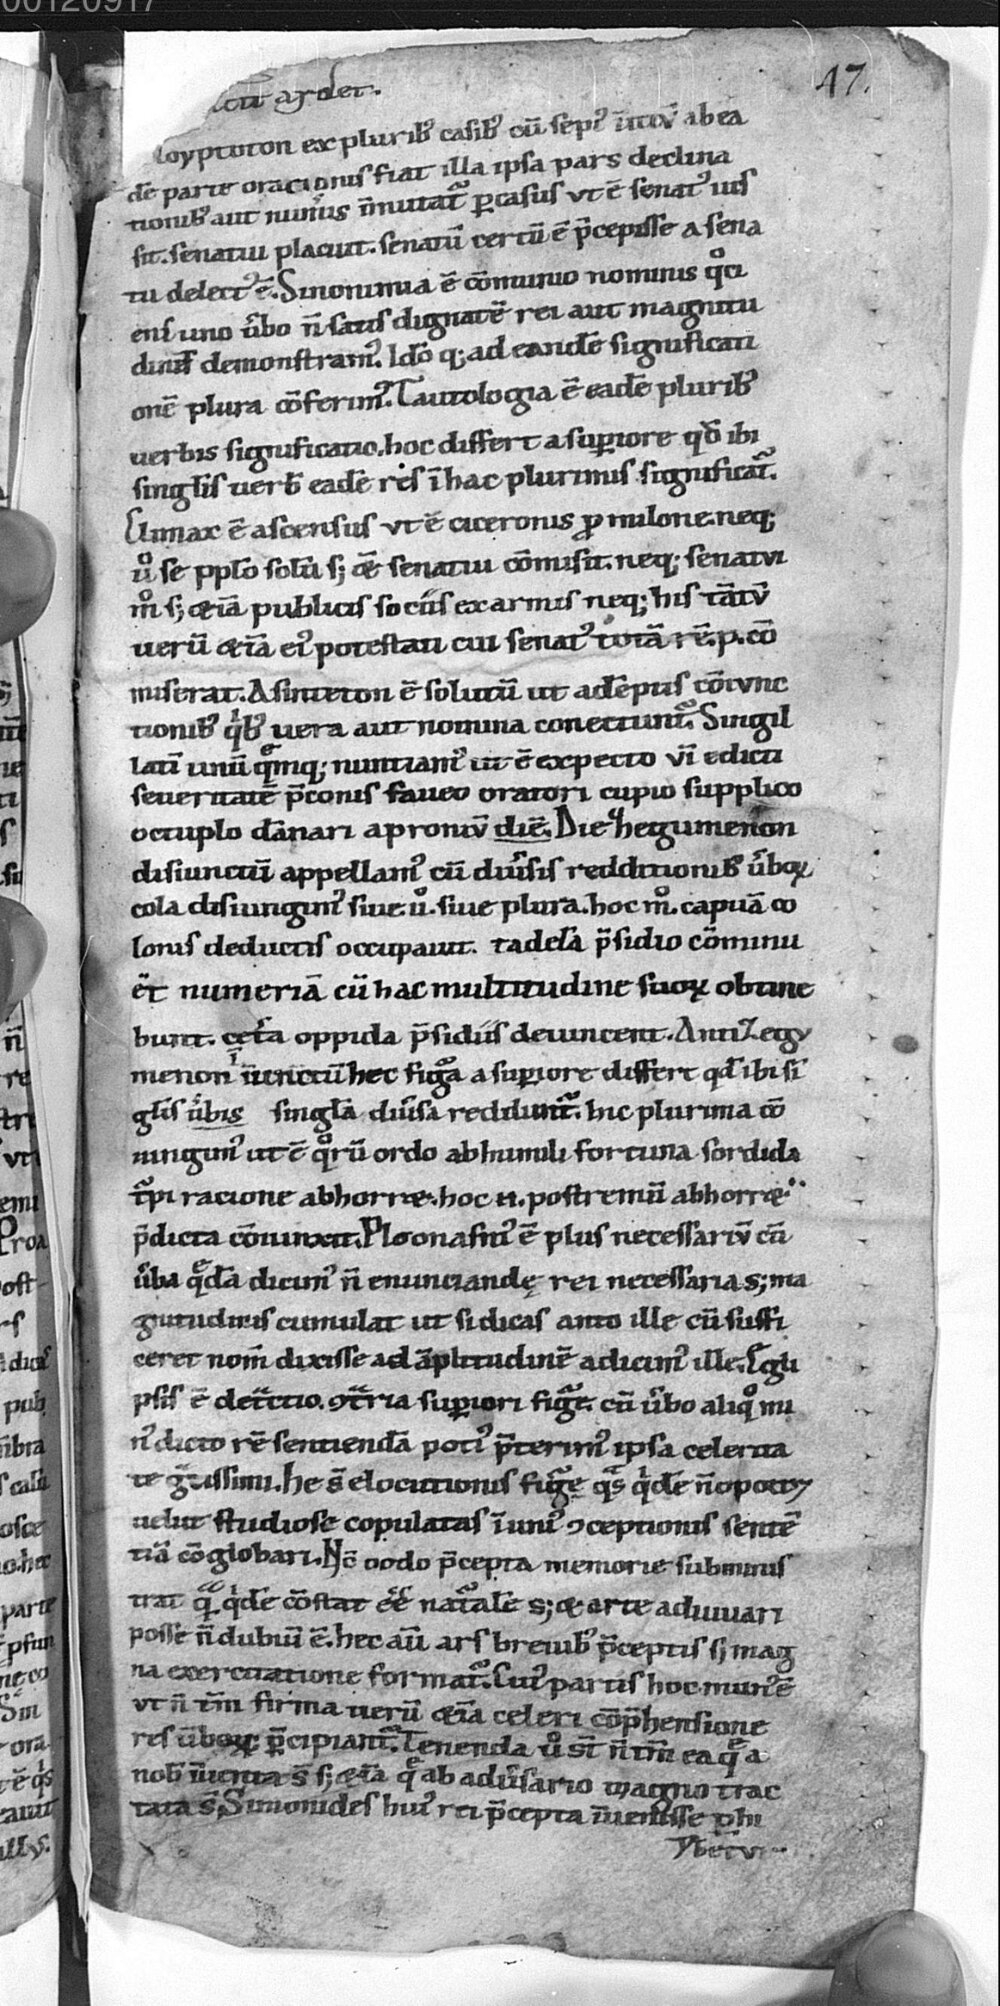 00120917
47.
ardet.
loyptoton ex plurib' casib' cū sep' abea
dē parte oracionis fiat illa ipsa pars declina
tionib' aut num̄is īmutat᷑ ꝑcasus vt ē senat' uis
sit. senatui placuit. senatū certū ē p̄cepisse a sena
tu delect' ē. Sinonimia ē cōmunio nominis qͦci
ens uno ūbo n̄ satis dignatē rei aut magnitu
demonstram'. Idō q; ad eandē significati
onē plura cōferim'. Tautologia ē eadē plurib'
uerbis significatio. hoc differt a suꝑiore qd̄ ibi
singlīs uerb̄ eadē res ī hac plurimis significat᷑.
Climax ē ascensus vt ē ciceronis ꝓ milone. neq;
uͦ se pplō solū s; &ē senatui cōmisit. neq; senatui
mͦ s; &iā publicis sociis ex armis neq; his tātū
uerū &iā ei' potestati cui senat' totā rē. p. cō
miserat. Asinteton ē solutū ut adēptis cōiunc
tionib' qͥb' uera aut nomina conectunt᷑. Singil
latī unū qͦmq; nuntiam' ut ē expecto vī edicti
seueritatē p̄conis faueo oratori cupio supplico
octuplo dānari apronıū diē. Die hegumenon
disiunctū appellam' cū diūsis redditionib' ūboꝝ
cola disiungim' siue .ii. siue plura. hoc mͦ. capuā co
lonis deductis occupauit. tadelā p̄sidio cōmuni
et numeriā cū hac multitudine suoꝝ obtine
bunt. cet̄a oppida p̄sidiis deuincent. Antizegy
menon iūnctū hec figͣa a suꝑiore differt qd̄ ibi si
glīs ūbis singlā diūsa reddunt᷑. hic plurima cō
iungim' ut ē qͦrū ordo ab humili fortuna sordida
racione abhorr&. hoc .n. postremū abhorr&
p̄dicta cōiunxit. Pleonasm' ē plus necessariū cū
ūba qͣdā dicim' n̄ enunciandę rei necessaria s; ma
gnitudinis cumulat ut si dicas anto ille cū suffi
ceret nom̄ dixisse ad āplitudinē adicim' ille. Egli
psis ē det̄ctio. ꝯt̄ria suꝑiori figͣe. cū ūbo aliqͦ mi
n' dicto rē sentiendā poti' p̄terim' ipsa celerita
te gͣtissimi. he s̄ elocutionis figͣe qͣs qͥdē n̄ opor
uelut studiose copulatas ī uni' ꝯceptionis sentē
tiā cōglobari. Nc̄ oodo p̄cepta memorie subminis
trat qͥdē cōstat ēē natͣalē s; & arte adiuuari
posse n̄ dubiū ē. hec aū ars breuib' p̄ceptis s; mag
na exercitatione format᷑. Cui' partis hoc mun'ē
vt n̄ tm̄ firma uerū &iā celeri cōp̄hensione
res ūboꝝq; ꝑcipiant᷑. Tenenda uͦ st̄ n̄ tm̄ ea qͣ a
nob̄ īuenta s̄ s; &iā qͣ ab adūsario magno trac
tata s̄. Simonides hui' rei p̄cepta īuenisse phi